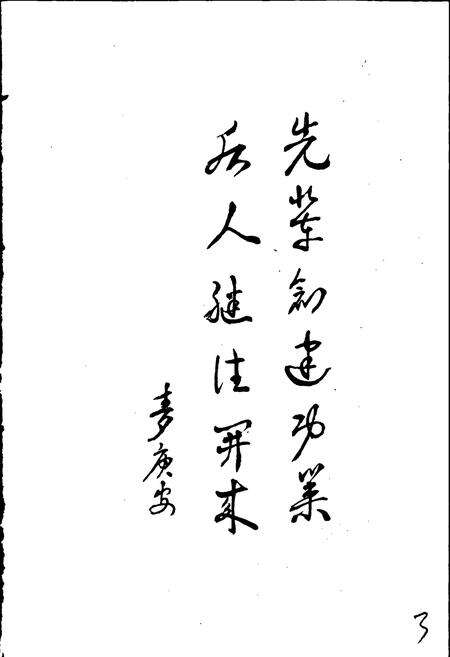 先辈创建功业
后人继往开来
麦庚安
3